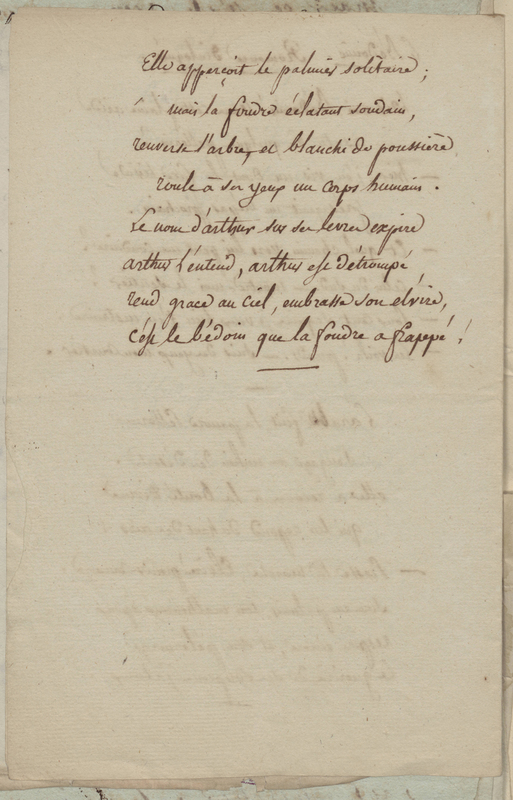 Elle apperçoit le palmier solitaire ;
mais la foudre éclatant soudain,
renverse l'arbre, et blanchi de poussière
roule à ses yeux un corps humain.
Le nom d'arthur sur ses levres expire
arthur l'entend, arthur est détrompé
rend grace au ciel, embrasse son elvire,
c'est le bédoin que la foudre a frapepé !